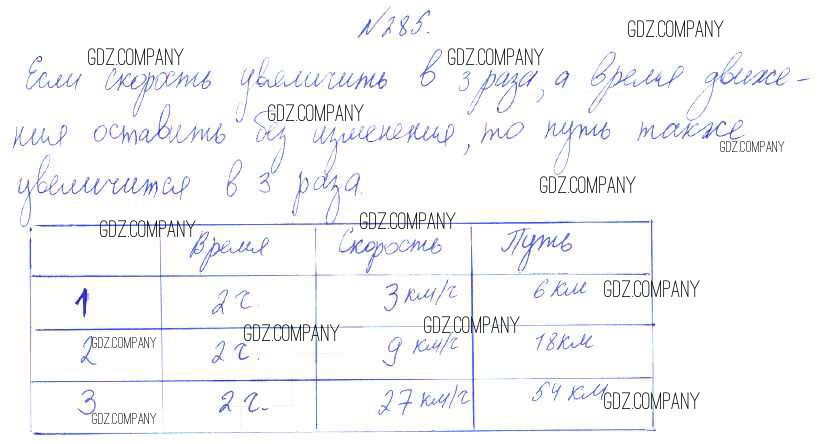 №285.
GDZ.COMPANY
GDZ.COMPANY GDZ.COMPANY
Если скорость увеличить в 3 раза, а время движе-
GDZ.COMPANY
ния оставить без изменения, то путь также
GDZ.COMPANY
увеличится в 3 раза.
GDZ.COMPANY
GDZ.COMPANY GDZ.COMPANY
Время Скорость Путь
1 2 ч. 3 км/ч 6 км GDZ.COMPANY
GDZ.COMPANY GDZ.COMPANY
2 GDZ.COMPANY 2 ч. 9 км/ч 18 км
3 2 ч. 27 км/ч 54 км GDZ.COMPANY
GDZ.COMPANY